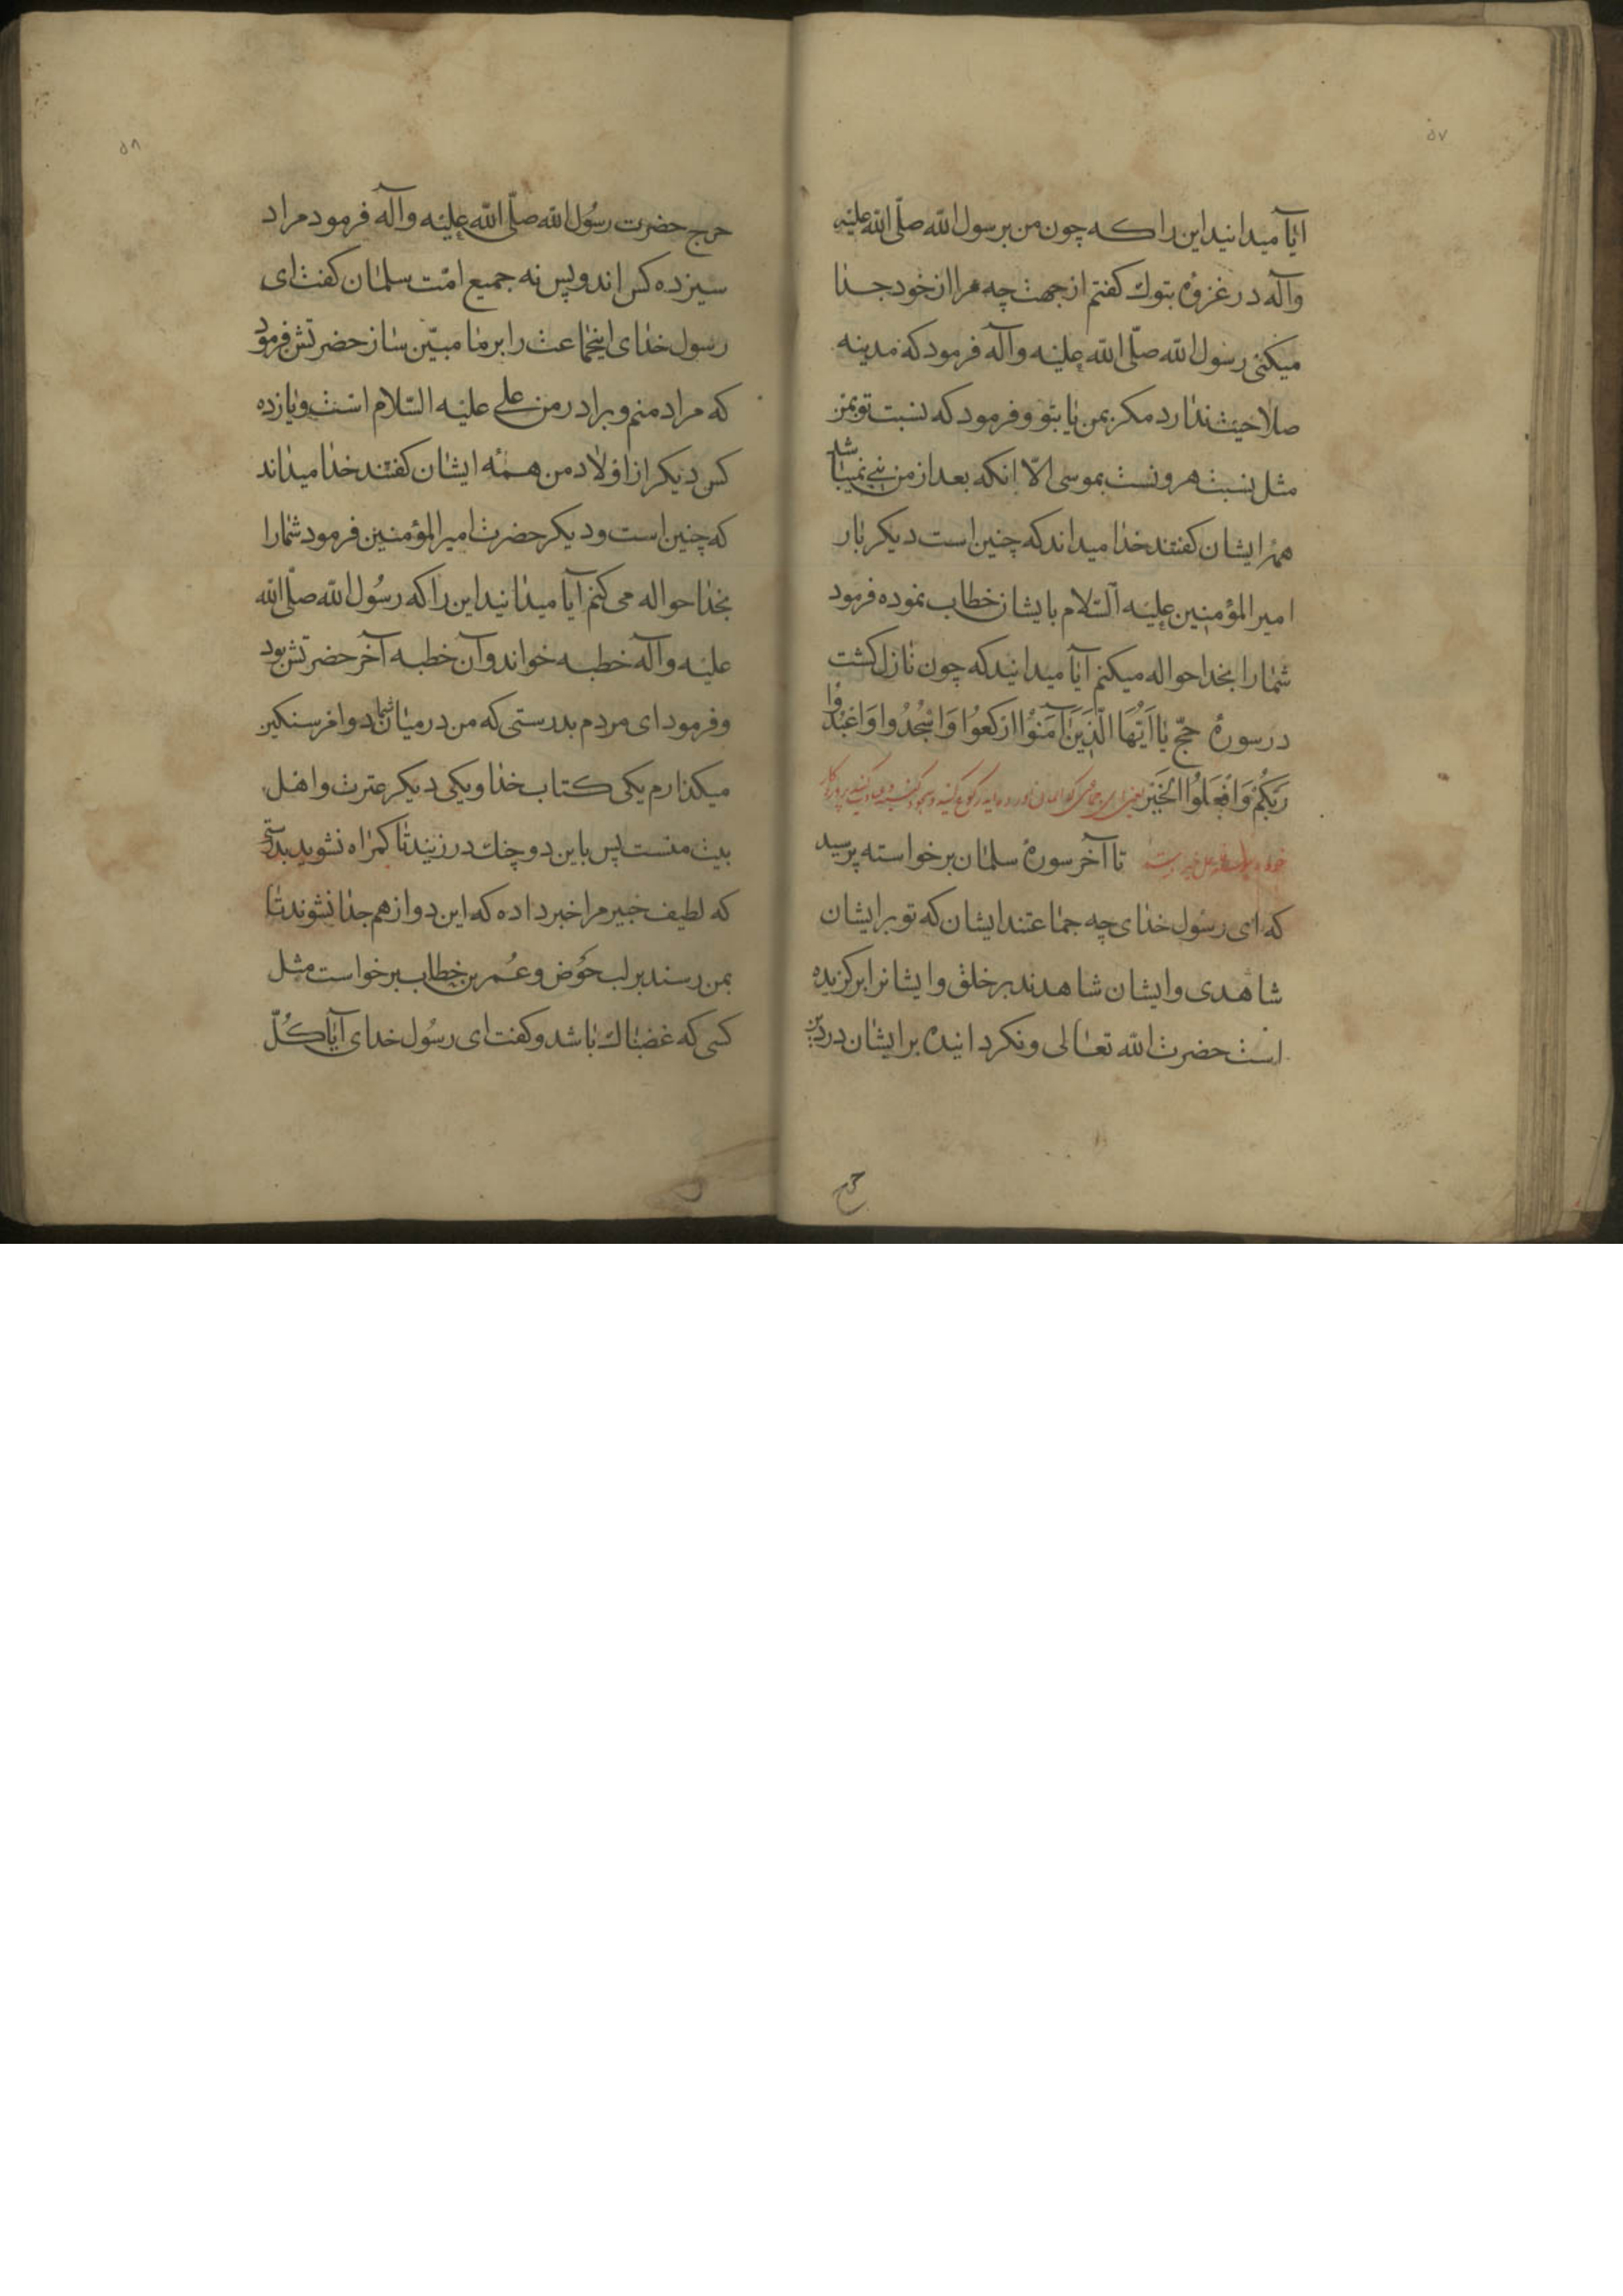 ۵۷
آیا میدانید این را که چون من برسول الله صلّی الله علیه
وآله در غزوهٔ تبوک کفتم از جهت چه مرا از خود جدا
میکنی رسول الله صلّی الله علیه وآله فرمود که مدینه
صلاحیت ندارد مکر بمن یا بتو و فرمود که نسبت تو بمن
مثل نسبت هرونست بموسی الّا انکه بعد از من نبی نمیباشد
همهٔ ایشان کفتند خدا میداند که چنین است دیکر بار
امیر المؤمنین علیه السّلام بایشان خطاب نموده فرمود
شما را بخدا حواله میکنم آیا میدانید که چون نازل کشت
در سورهٔ حجّ یا اَیُّهَا الَّذِینَ آمَنُوْا ارْکَعُوا وَاسْجُدُوا وَاعْبُدُوا
رَبَّکُمْ وَافْعَلُوا الْخَیْرَ یعنی ای جماعتی که ایمان آورده‌اید رکوع کنید و سجود کنید و عبادت کنید پروردکار
خود را تا آخر سورهٔ سلمان برخواسته پرسید
که ای رسول خدای چه جماعتند ایشان که تو بر ایشان
شاهدی و ایشان شاهدند بر خلق و ایشانرا برکزیده
است حضرت الله تعالی و نکردانیده بر ایشان در دین
حرج
۵۸
حرج حضرت رسُول الله صلّی الله علیه وآله فرمود مراد
سیزده کس اند و بس نه جمیع امّت سلمان کفت ای
رسول خدای اینجماعت را بر ما مبیّن ساز حضرتش فرمود
که مراد منم و برادر من علی علیه السّلام است و یازده
کس دیکر از اولاد من همهٔ ایشان کفتند خدا میداند
که چنین است و دیکر حضرت امیر المؤمنین فرمود شما را
بخدا حواله می کنم آیا میدانید این را که رسُول الله صلّی الله
علیه وآله خطبه خواند و آن خطبه آخر حضرتش بود
و فرمود ای مردم بدرستی که من در میان شما دو امر سنکین
میکذارم یکی کتاب خدا و یکی دیکر عترت و اهل
بیت منست پس باین دو چنک در زنید تا کمراه نشوید بدرستی
که لطیف خبیر مرا خبر داده که این دو از هم جدا نشوند تا
بمن رسند بر لب حَوض و عُمر بن خطاب برخواست مثل
کسی که غضبناک باشد و کفت ای رسُول خدای آیا کُلّ